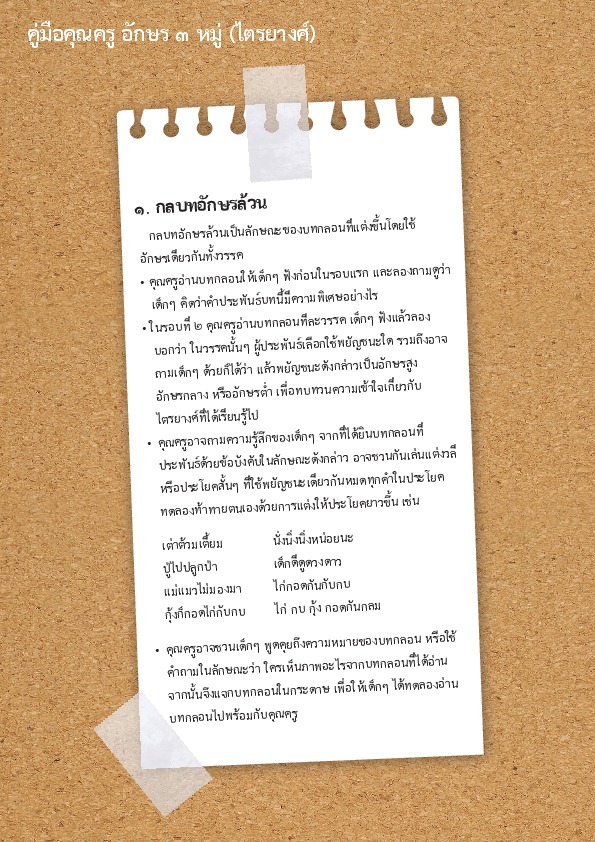 คู่มือคุณครู อักษร ๓ หมู่ (ไตรยางศ์)
๑. กลบทอักษรล้วน
กลบทอักษรล้วนเป็นลักษณะของบทกลอนที่แต่งขึ้นโดยใช้
อักษรเดียวกันทั้งวรรค
• คุณครูอ่านบทกลอนให้เด็กๆ ฟังก่อนในรอบแรก และลองถามดูว่า
เด็กๆ คิดว่าคำประพันธ์บทนี้มีความพิเศษอย่างไร
• ในรอบที่ ๒ คุณครูอ่านบทกลอนทีละวรรค เด็กๆ ฟังแล้วลอง
บอกว่า ในวรรคนั้นๆ ผู้ประพันธ์เลือกใช้พยัญชนะใด รวมถึงอาจ
ถามเด็กๆ ด้วยก็ได้ว่า แล้วพยัญชนะดังกล่าวเป็นอักษรสูง
อักษรกลาง หรืออักษรต่ำ เพื่อทบทวนความเข้าใจเกี่ยวกับ
ไตรยางศ์ที่ได้เรียนรู้ไป
• คุณครูอาจถามความรู้สึกของเด็กๆ จากที่ได้ยินบทกลอนที่
ประพันธ์ด้วยข้อบังคับในลักษณะดังกล่าว อาจชวนกันเล่นแต่งวลี
หรือประโยคสั้นๆ ที่ใช้พยัญชนะเดียวกันหมดทุกคำในประโยค
ทดลองท้าทายตนเองด้วยการแต่งให้ประโยคยาวขึ้น เช่น
เต่าต้วมเตี้ยม นั่งนิ่งนิ่งหน่อยนะ
ปู่ไปปลูกป่า เด็กดีดูดวงดาว
แม่แมวไม่มองมา ไก่กอดกันกับกบ
กุ้งก็กอดไก่กับกบ ไก่ กบ กุ้ง กอดกันกลม
• คุณครูอาจชวนเด็กๆ พูดคุยถึงความหมายของบทกลอน หรือใช้
คำถามในลักษณะว่า ใครเห็นภาพอะไรจากบทกลอนที่ได้อ่าน
จากนั้นจึงแจกบทกลอนในกระดาษ เพื่อให้เด็กๆ ได้ทดลองอ่าน
บทกลอนไปพร้อมกับคุณครู